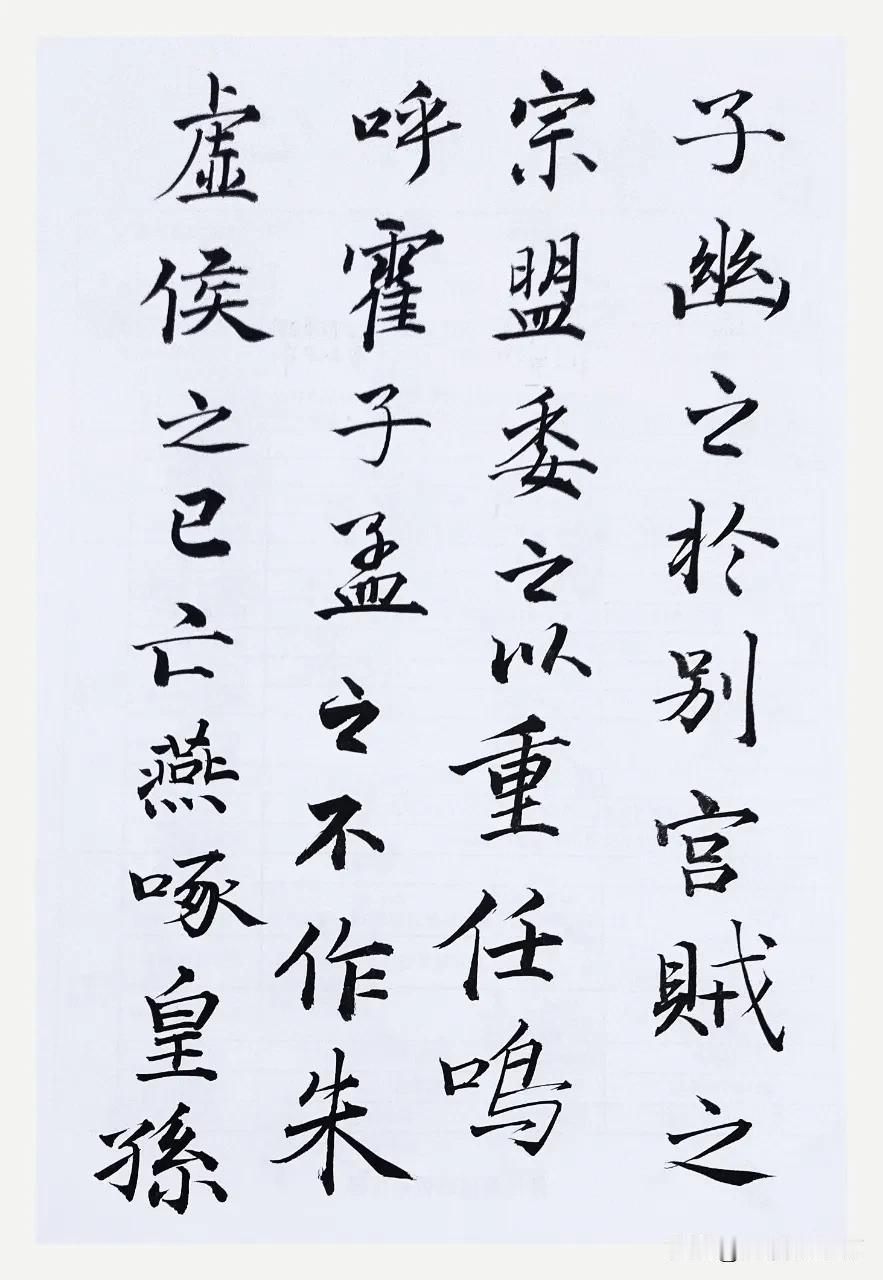 子幽之於别宫賊之
宗盟委之以重任鳴
呼霍子孟之不作朱
虛侯之已亡燕啄皇孫